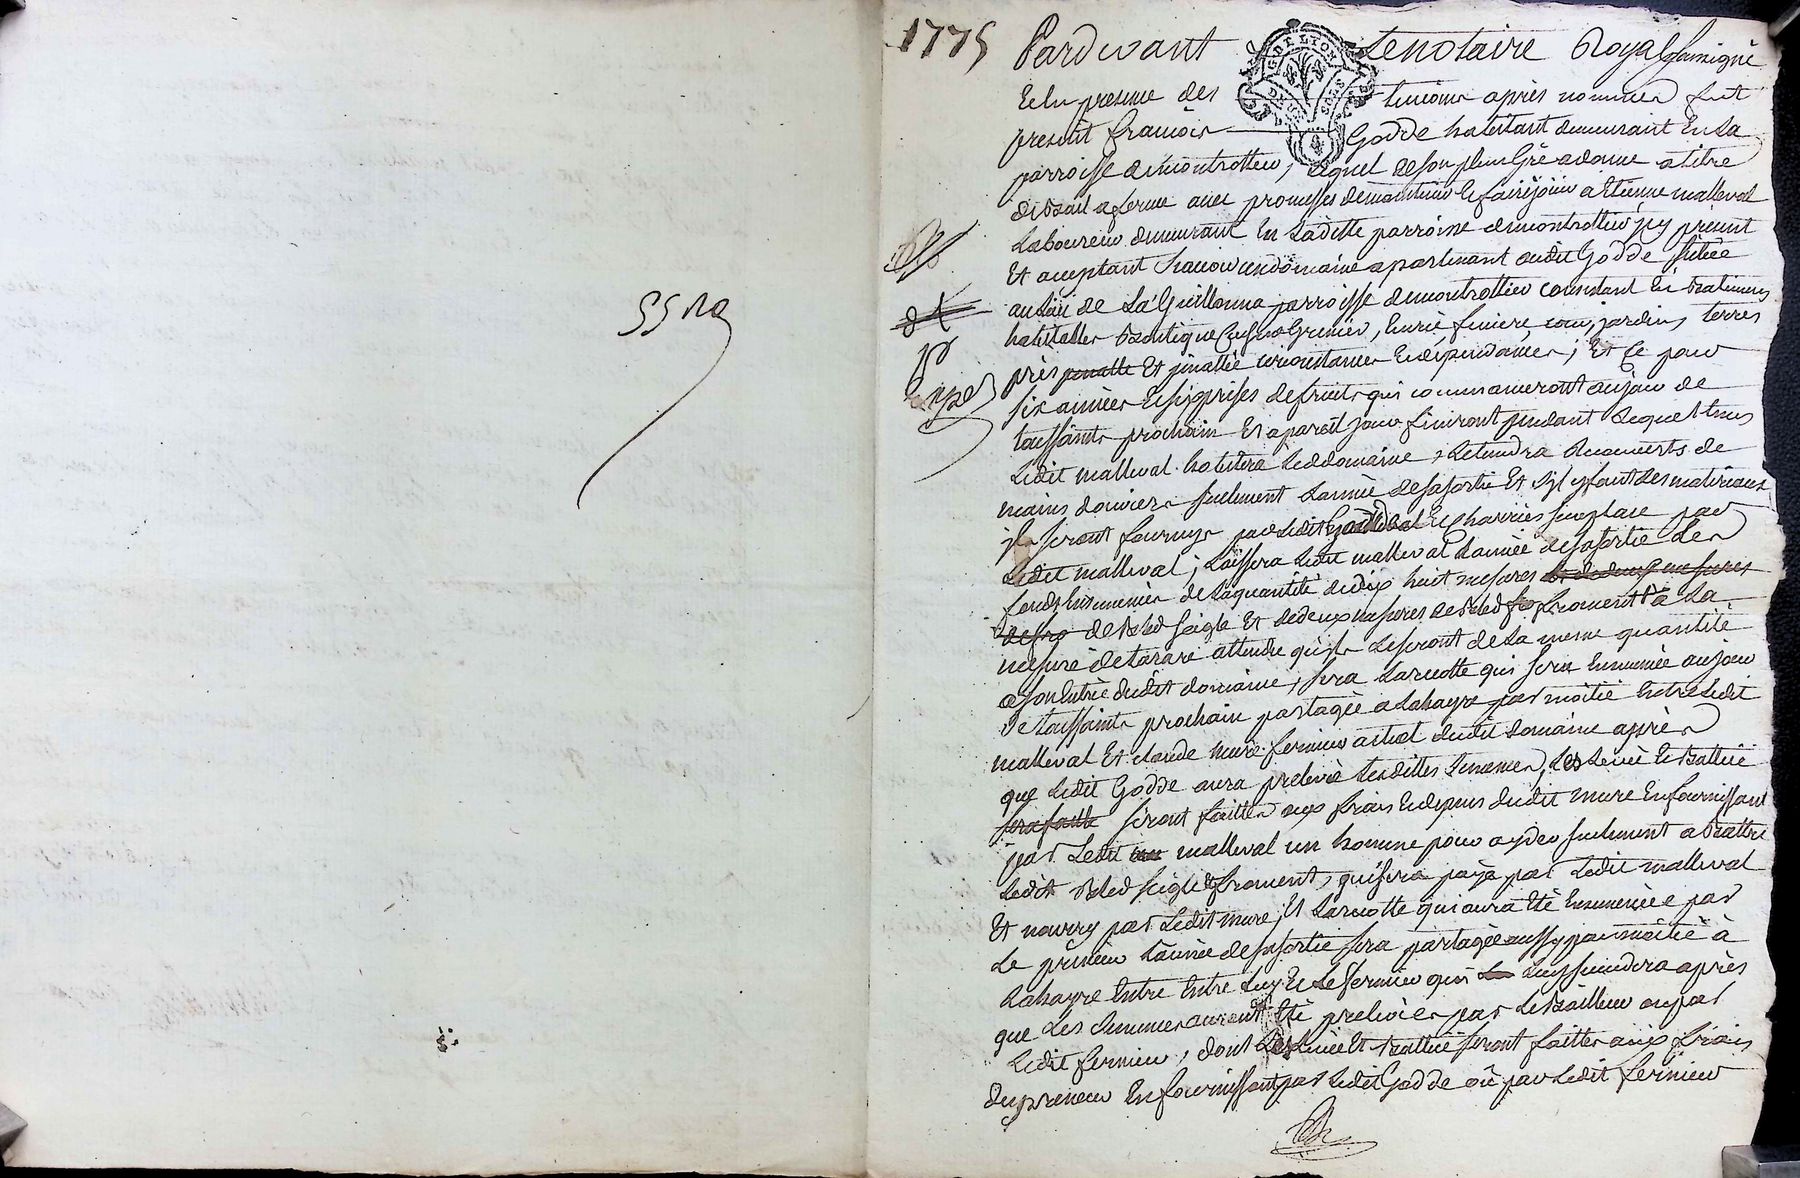 1775
Pardevant le notaire Royal soussigné
Et en presence des temoins après nommes fut
present françois Godde habitant demurant En la
parroisse de montrottier, lequel de son plein Gré a donné a titre
de bail a ferme avec promesses de maintenir et faire jouir a Etienne malleval
Laboureur demeurant En Laditte parroisse de montrottier jcy present
Et acceptant scavoir un domaine apartenant audit Godde situee
au lieu de La Guillonna parroisse de montrottier consistant En batimens
habitables boutique Grenier, Ecurie feniere cour, jardins terres
près Et pinallée circonstances Et dépendances; Et ce pour
six années Et six prises de fruits qui commanceront au jour de
toussaints prochain Et a pareil jour finiront pendant lequel tems
Ledit malleval habitera led domaine, Letiendra Recouverts de
mains d'ouvriers seulement L'année de sa sortie Et s'jl y faut des materiaux
jls seront fournys par Ledit Godde Et charriés sur place par
Ledit malleval; Laissera Ledit malleval L'année de sa sortie Les
fonds Ensemencés de la quantité de dix huit mesures et de deux mesures
de bled seigle Et de deux mesures de bled froment a La
mesure de tarare attendu qu'jls Le seront de La meme quantité
a son Entrée dudit domaine, sera La recolte qui sera Ensemencée au jour
de toussaints prochain partagée a Lahayre par moitié Entre Ledit
malleval Et claude mure fermier actuel dudit domaine après
que Ledit Godde aura prelevé Lesdittes semences, Les Levée Et battue
sera faitte seront faittes aux frais Et depens dudit mure En fournissant
par Ledit malleval un homme pour ayder seulement a battre
Ledit bled seigle & froment, qui sera payé par Ledit malleval
Et nourry par Ledit mure; Et La recolte qui aura Eté Ensemencée par
Le preneur L'année de sa sortie sera partagée aussy par moitié à
Lahayre Entre Entre Luy Et Le fermier qui Luy succedera après
que Les semences auront Eté prelevées par Le bailleur ou par
Ledit fermier, dont Les Levée Et battue seront faittes aux frais
du preneur En fournissant par Ledit Godde ou par Ledit fermier